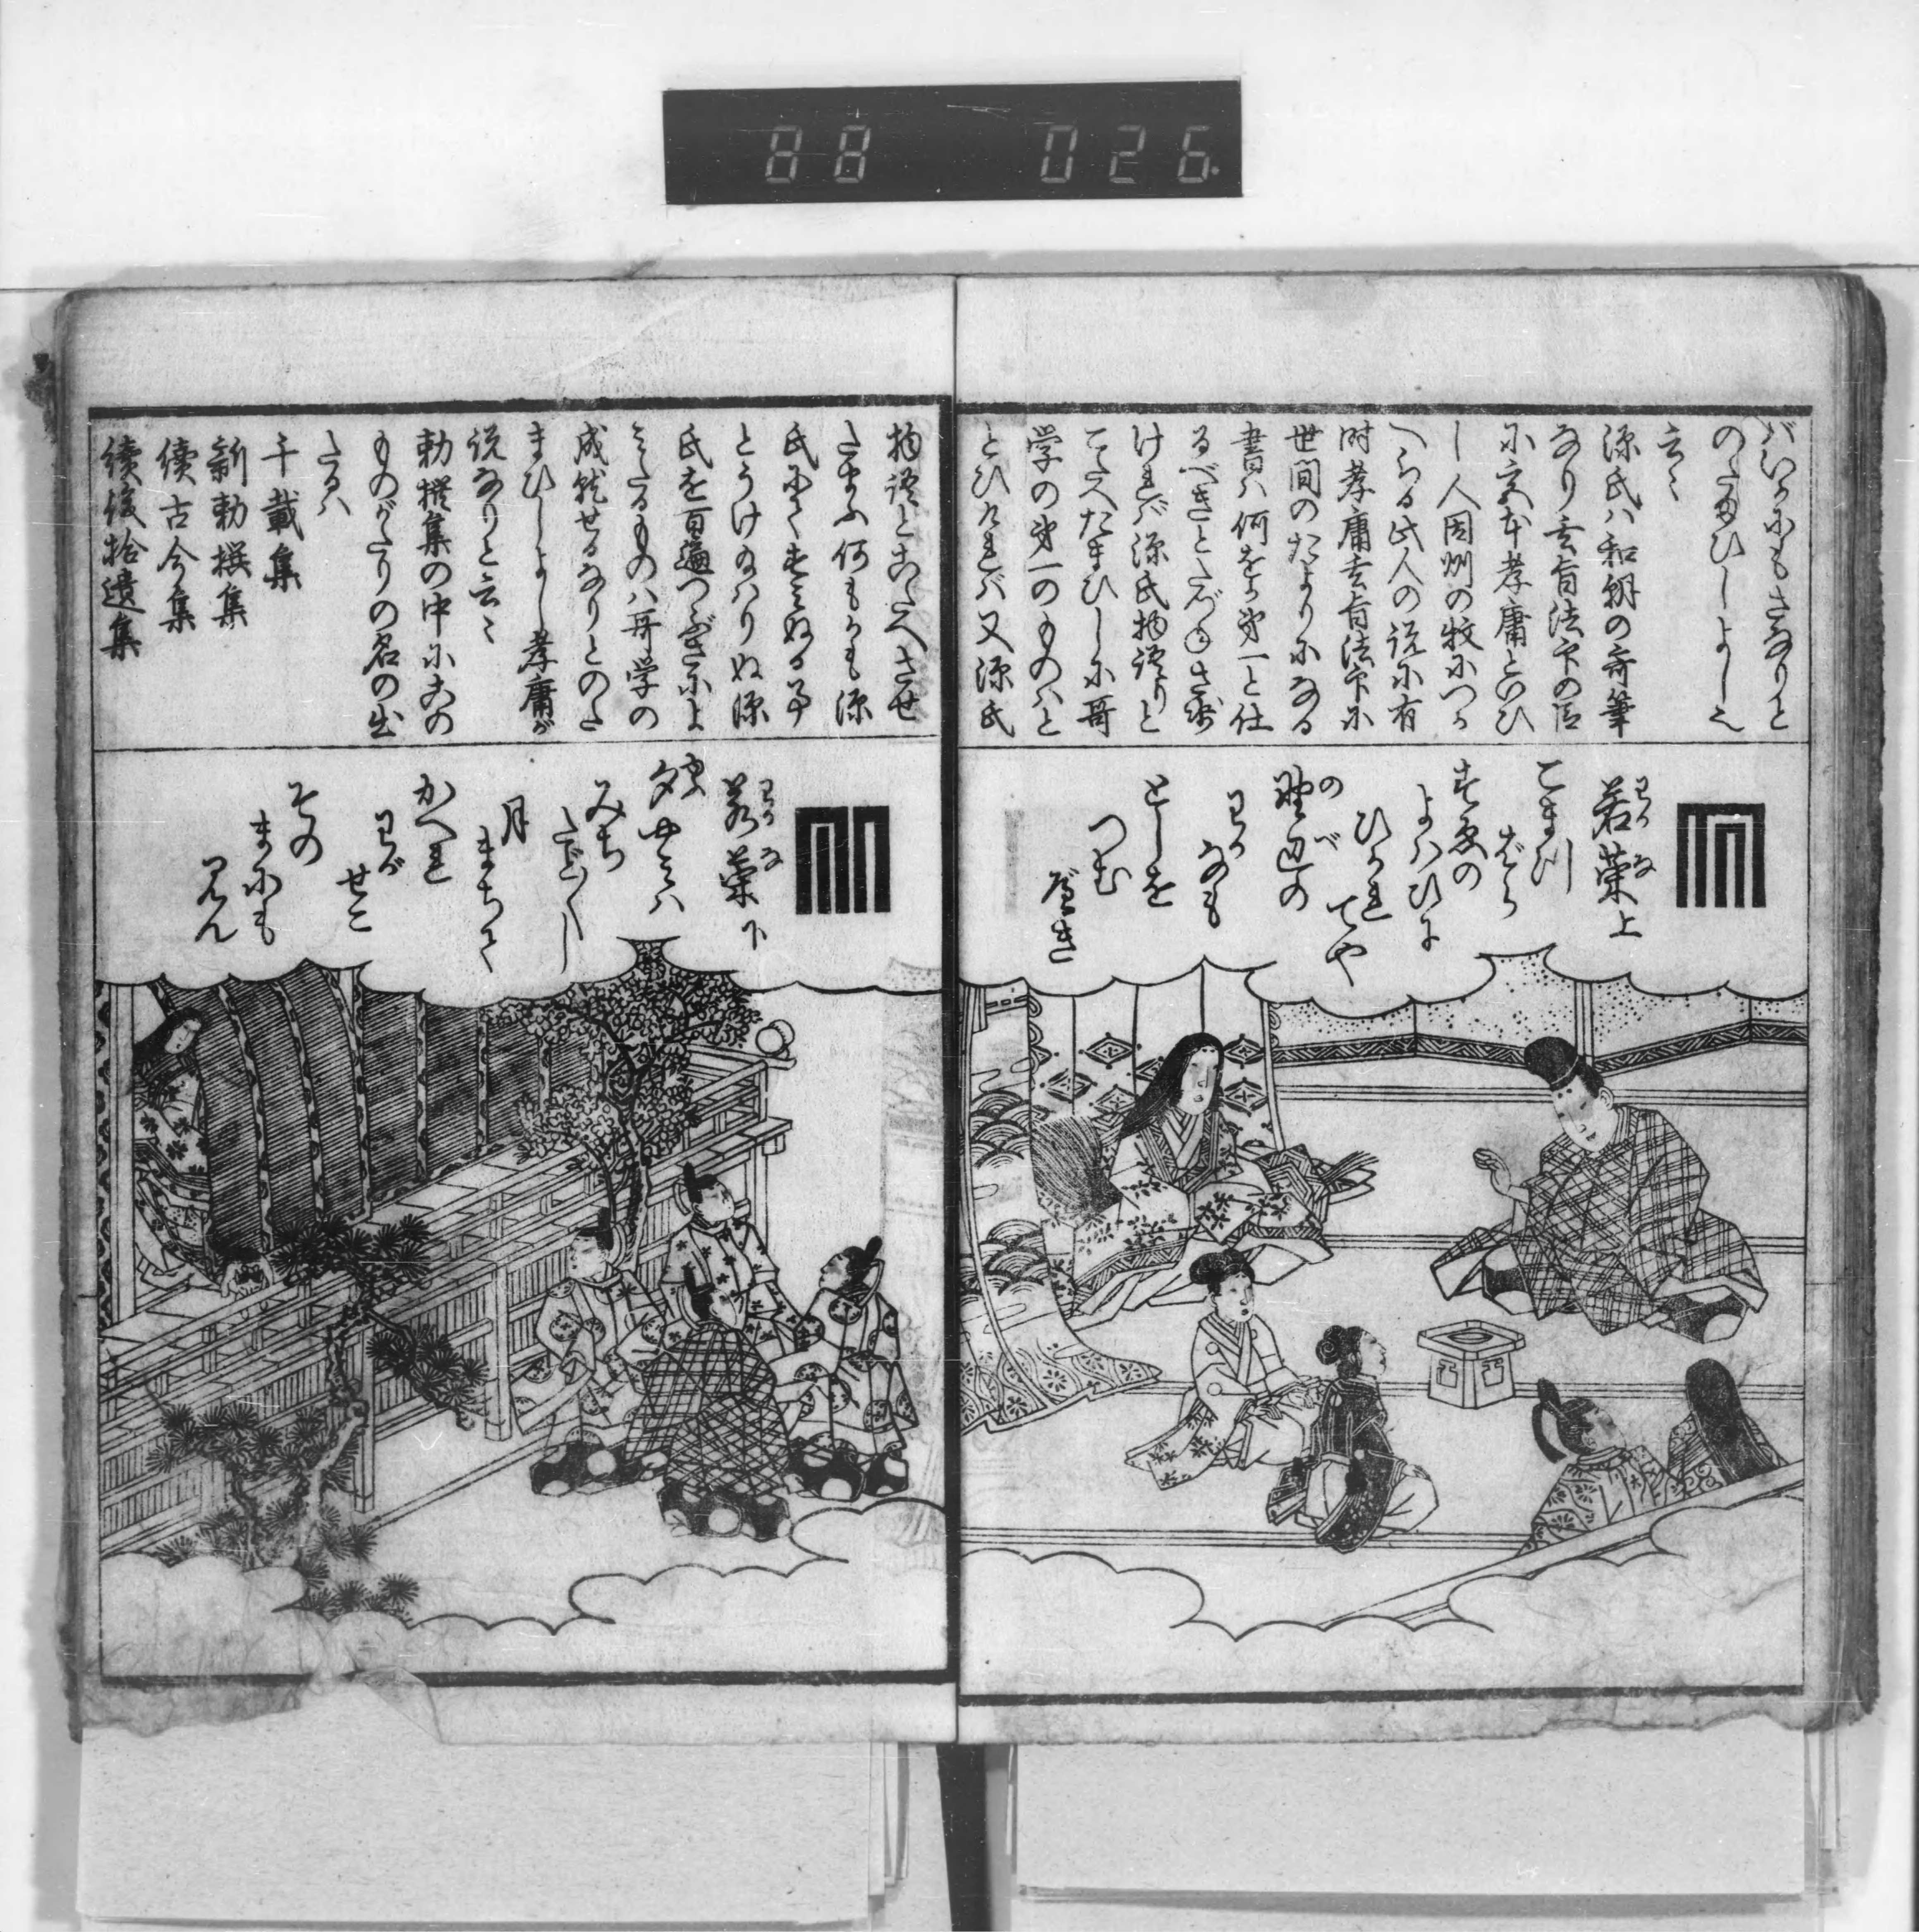 88 026
バいかにもさなりと
のたまひしよし也
云〻
源氏ハ和朝の奇筆
なり玄旨法印の
に宮木孝庸といひ
し人因州の牧につか
へらる此人の説に有
時孝庸玄旨法印に
世間のたよりになる
書ハ何をか第一と仕
るべきとたづねさせ
けれバ源氏物語りと
こたへたまひしに哥
学の第一のものハと
とひけれバ又源氏
若菜上
わかな
こまつ
ばら
すゑの
よハひに
ひかれ
てや
のべ
野辺の
わか
なも
としを
つむ
べき
物語とこたへさせ
たまふ何もかも源
氏にてすミぬる事
とうけ給ハりぬ源
氏を百遍つぶさによ
ミたるものハ哥学の
成就せるなりとのた
まひしよし孝庸が
説なりと云〻
勅撰集の中に此の
ものがたりの名の出
たるハ
千載集
新勅撰集
続古今集
続後拾遺集
若菜下
わかな
夕やミハ
みち
たど〳〵し
月
まちて
かへれ
わが
せこ
その
まにも
見ん